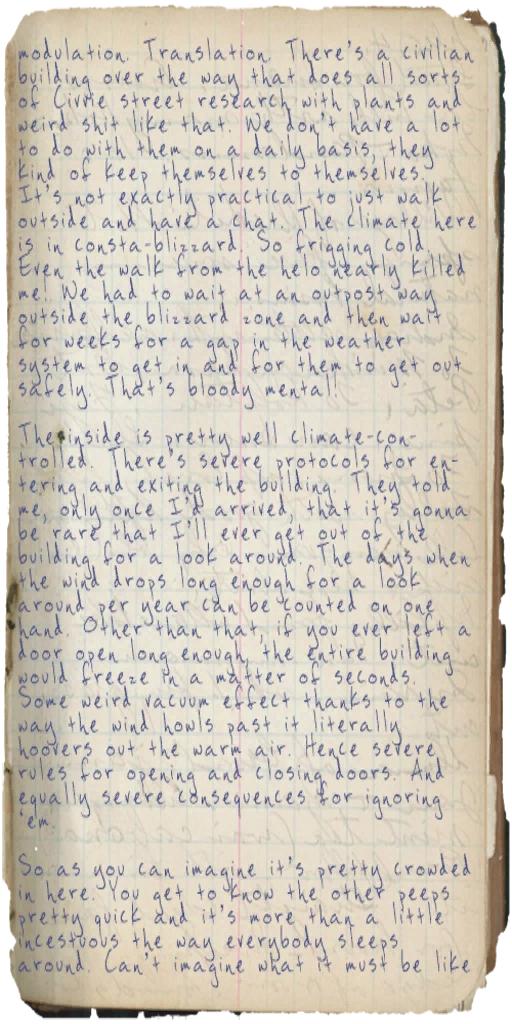 modulation. Translation. There's a civilian
building over the way that does all sorts
of Civvie street research with plants and
weird shit like that. We don't have a lot
to do with them on a daily basis, they
kind of keep themselves to themselves.
It's not exactly practical to just walk
outside and have a chat. The climate here
is in consta-blizzard. So frigging cold.
Even the walk from the helo nearly killed
me! We had to wait at an outpost way
outside the blizzard zone and then wait
for weeks for a gap in the weather
system to get in and for them to get out
safely. That's bloody mental!

The inside is pretty well climate-con-
trolled. There's severe protocols for en-
tering and exiting the building. They told
me, only once I'd arrived, that it's gonna
be rare that I'll ever get out of the
building for a look around. The days when
the wind drops long enough for a look
around per year can be counted on one
hand. Other than that, if you ever left a
door open long enough, the entire building
would freeze in a matter of seconds.
Some weird vacuum effect thanks to the
way the wind howls past it literally
hoovers out the warm air. Hence severe
rules for opening and closing doors. And
equally severe consequences for ignoring
'em.

So as you can imagine it's pretty crowded
in here. You get to know the other peeps
pretty quick and it's more than a little
incestuous the way everybody sleeps
around. Can't imagine what it must be like